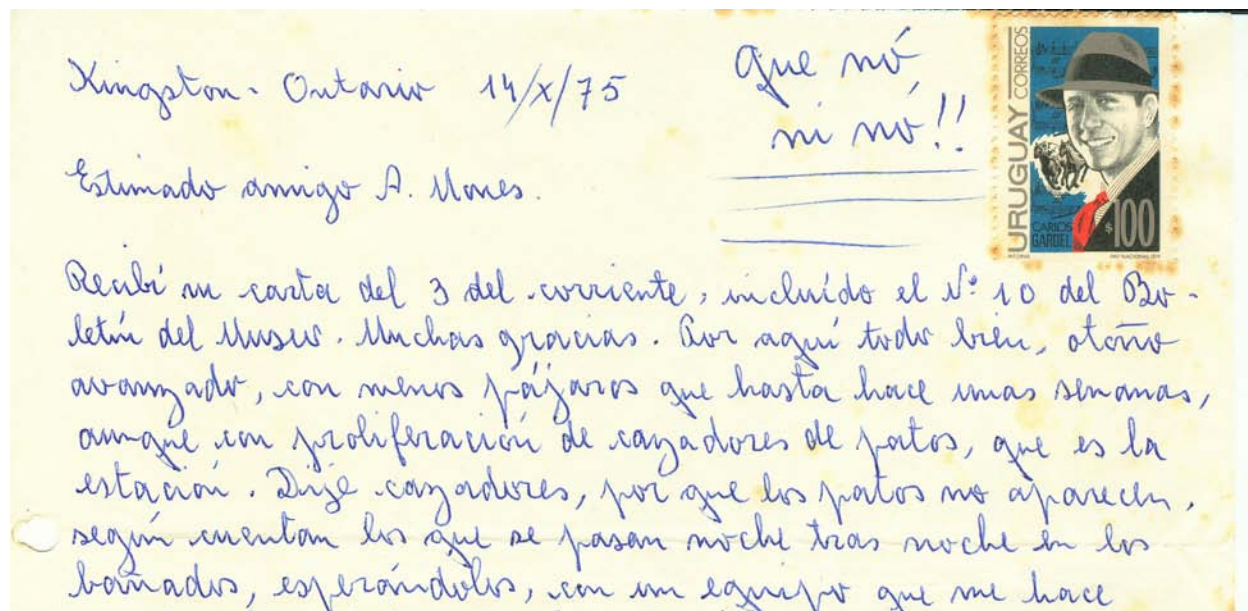 Kingston - Ontario 14/X/75
que nó,
ni nó!!
URUGUAY CORREOS
CARLOS
GARDEL
$100
Estimado amigo A. Mones.
Recibí su carta del 3 del corriente, incluído el Nº 10 del Bo-
letín del Museo. Muchas gracias. Por aquí todo bien, otoño
avanzado, con menos pájaros que hasta hace unas semanas,
aunque con proliferación de cazadores de patos, que es la
estación. Dije cazadores, por que los patos no aparecen,
según cuentan los que se pasan noche tras noche en los
bañados, esperándolos, con un equipo que me hace